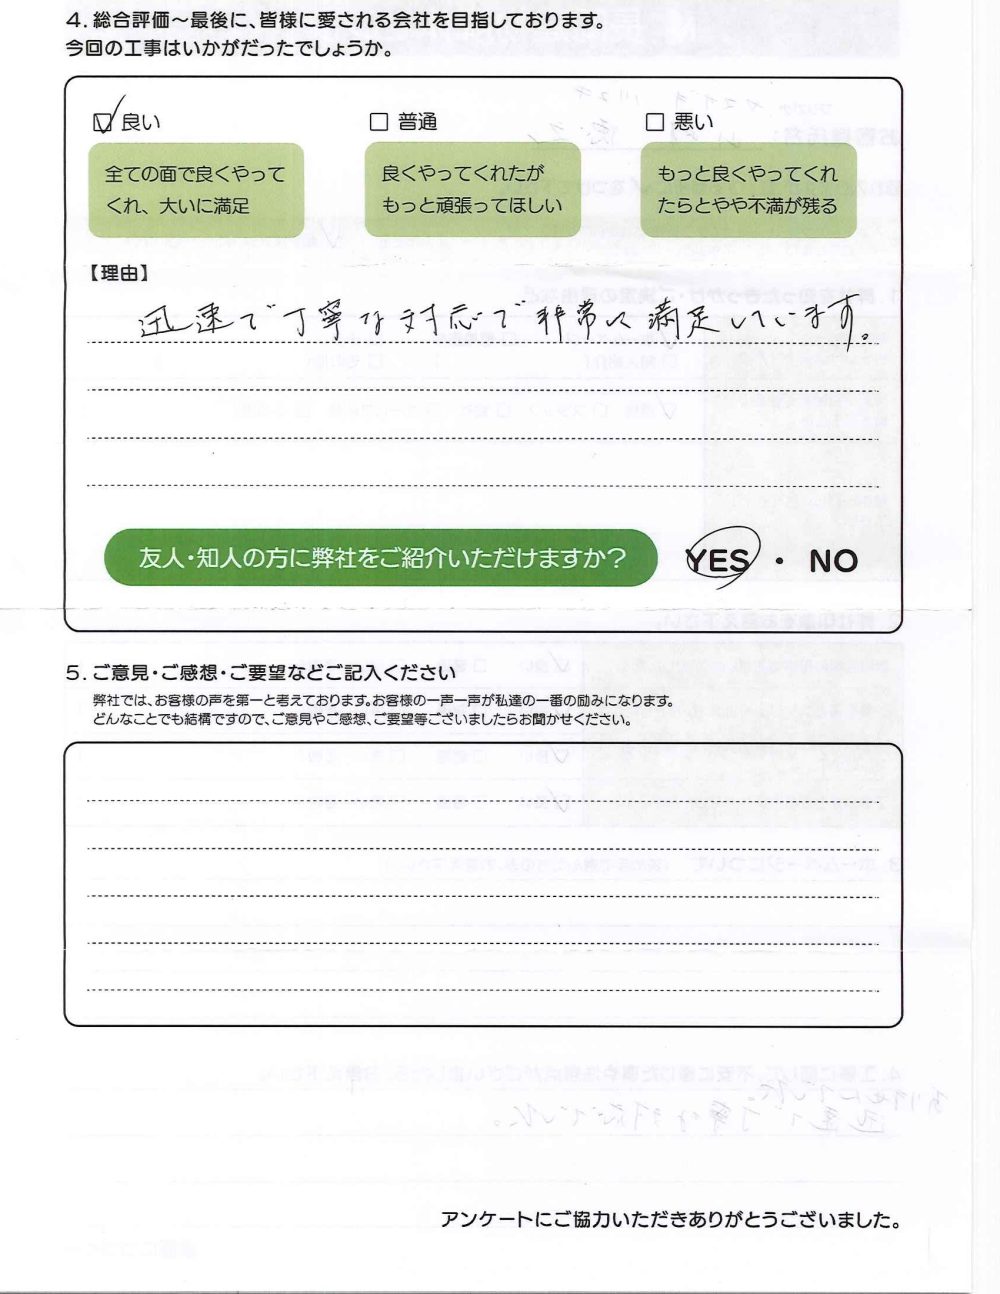 4. 総合評価～最後に、皆様に愛される会社を目指しております。
今回の工事はいかがだったでしょうか。
☑ 良い □ 普通 □ 悪い
全ての面で良くやって
くれ、大いに満足
良くやってくれたが
もっと頑張ってほしい
もっと良くやってくれ
たらとやや不満が残る
【理由】
迅速で丁寧な対応で非常に満足しています。
友人・知人の方に弊社をご紹介いただけますか？ YES ・ NO
5. ご意見・ご感想・ご要望などご記入ください
弊社では、お客様の声を第一と考えております。お客様の一声一声が私達の一番の励みになります。
どんなことでも結構ですので、ご意見やご感想、ご要望等ございましたらお聞かせください。
アンケートにご協力いただきありがとうございました。